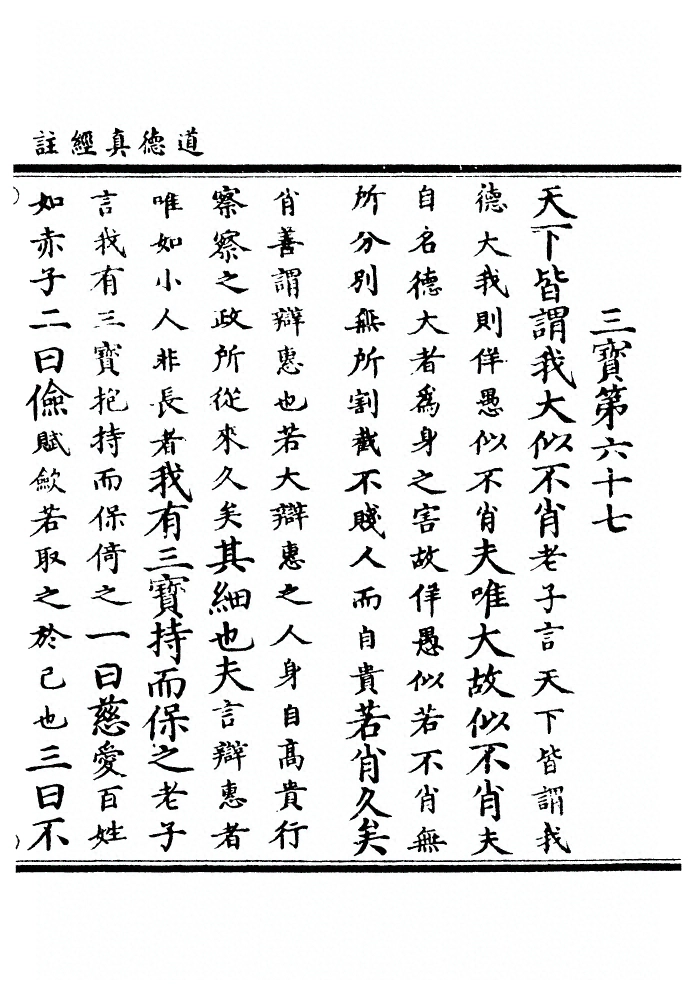 道德真經註
三寶第六十七
天下皆謂我大似不肖老子言天下皆謂我
德大我則佯愚似不肖夫唯大故似不肖夫
自名德大者為身之害故佯愚似若不肖無
所分別無所割截不賤人而自貴若肖久矣
肖善謂辯惠也若大辯惠之人身自高貴行
察察之政所從來久矣其細也夫言辯惠者
唯如小人非長者我有三寶持而保之老子
言我有三寶抱持而保倚之一曰慈愛百姓
如赤子二曰儉賦歛若取之於己也三曰不